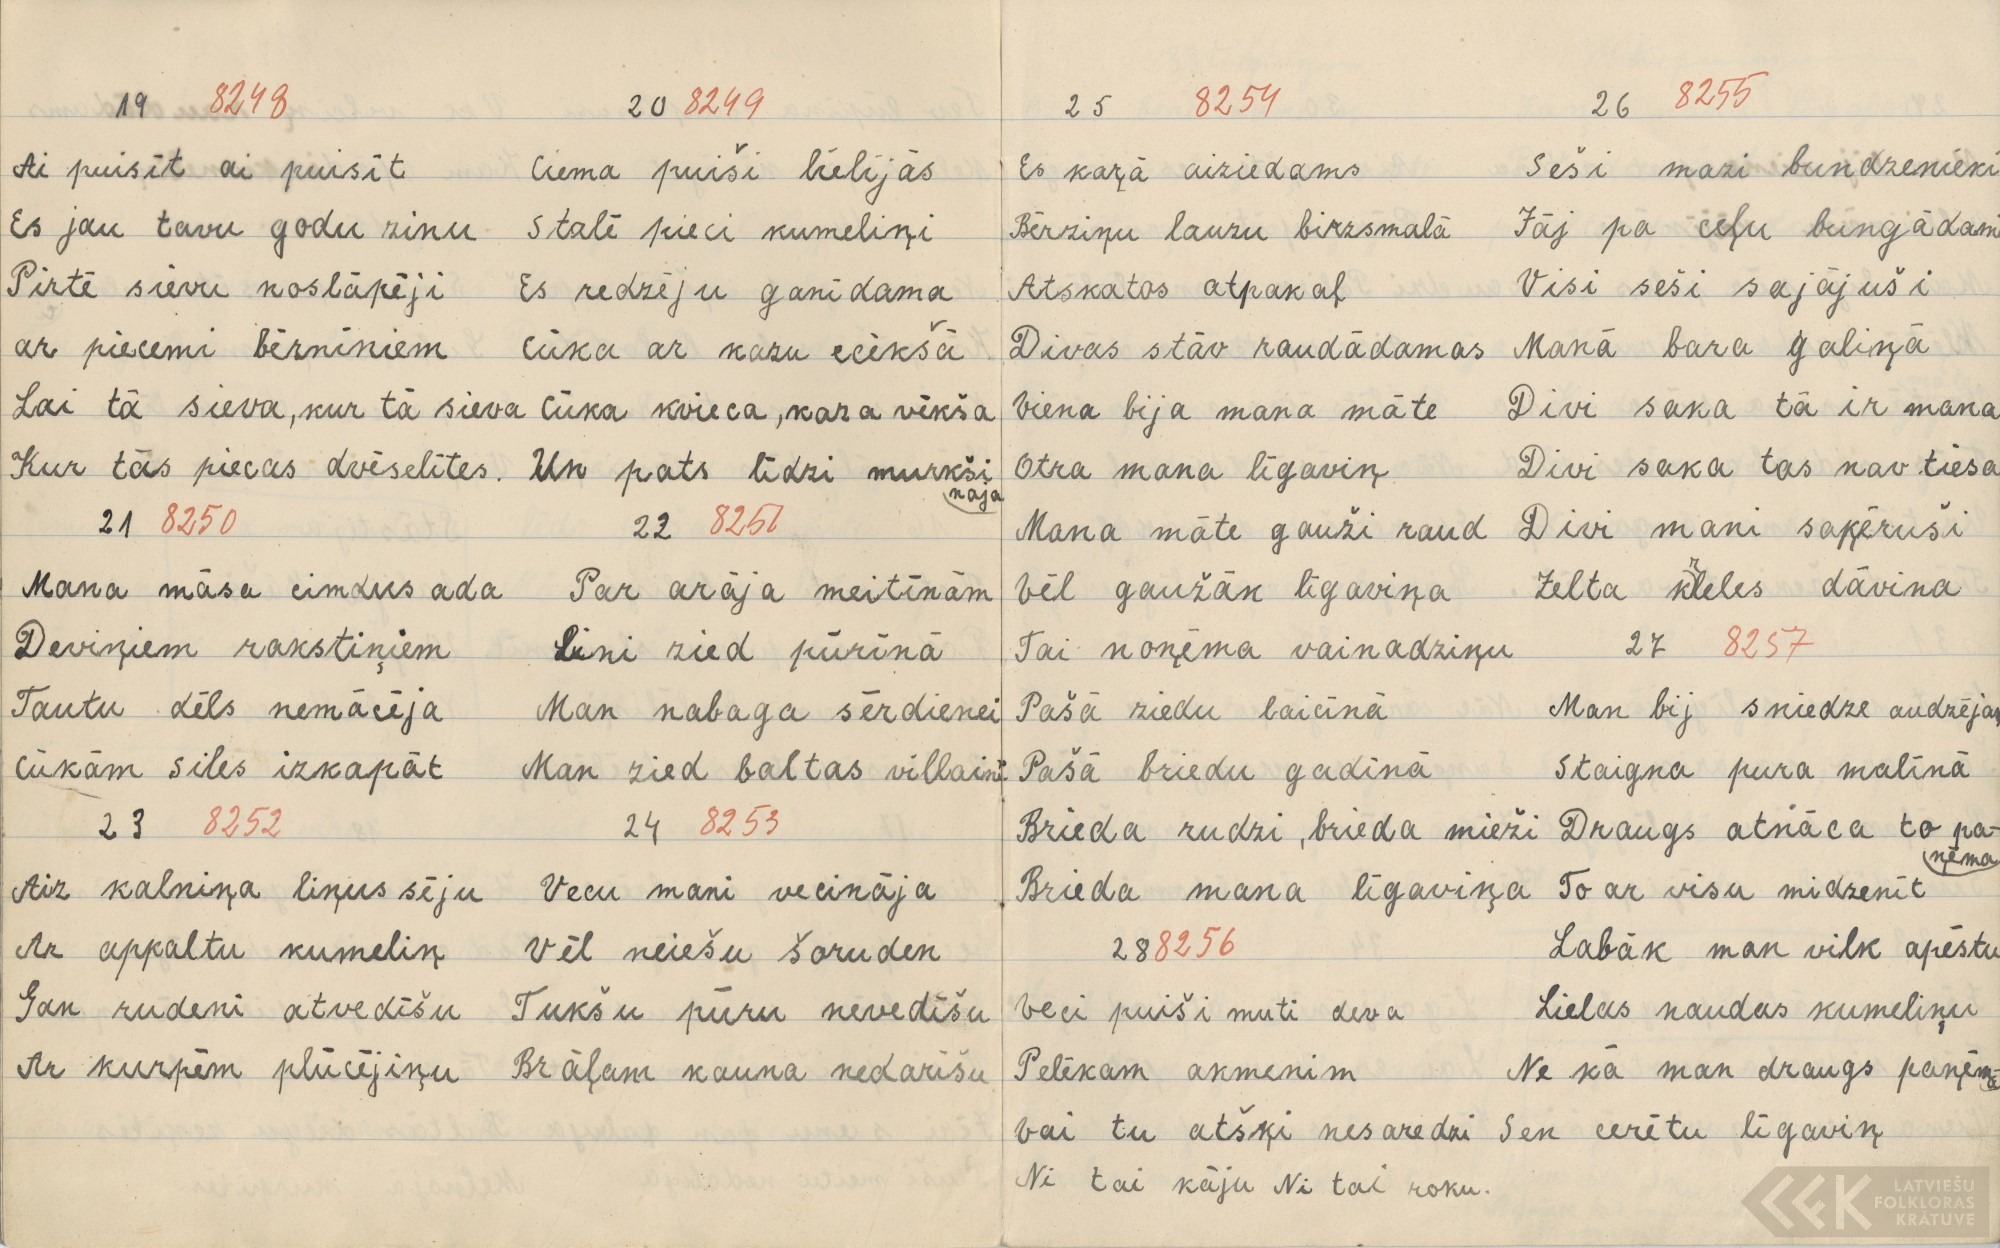 19 8248
Ai puisīt ai puisīt
Es jau tavu godu zinu
Pirtē sievu noslāpēji
ar piecemi bērniniem
Lai tā sieva, kur tā sieva
Kur tās piecas dvēselītes.
20 8249
Ciema puiši lielījās
Stalē pieci kumeliņi
Es redzēju ganīdama
Cūka ar kazu ecēkšā
Cūka kvieca, kaza vēkša
Un pats līdzi murkši
naja
21 8250
Mana māsa cimdus ada
Deviņiem rakstiņiem
Tautu dēls nemācēja
Cūkām siles izkapāt
22 8251
Par arāja meitīnām
Lini zied pūrīnā
Man nabaga sērdienei
Man zied baltas villaini
23 8252
Aiz kalniņa liņus sēju
Ar apkaltu kumeliņ
Gan rudeni atvedīšu
Ar kurpēm plūcējiņu
24 8253
Vecu mani vecināja
Vēl neiešu šoruden
Tukšu pūru nevedīšu
Brāļam kauna nedarīšu
25 8254
Es kaŗā aiziedams
Bērziņu lauzu birzsmalā
Atskatos atpakaļ
Divas stāv raudādamas
Viena bija mana māte
Otra mana līgaviņ
Mana māte gauži raud
Vēl gaužāk līgaviņa
Tai noņēma vainadziņu
Pašā ziedu laicīnā
Pašā briedu gadīnā
Brieda rudzi, brieda mieži
Brieda mana līgaviņa
28 8256
Veci puiši muti deva
Pelēkam akmenim
Vai tu atšķi nesaredzi
Ni tai kāju Ni tai roku.
26 8255
Seši mazi bundzenieki
Jāj pa ceļu bungādami
Visi seši sajājuši
Manā bara galiņā
Divi saka tā ir mana
Divi saka tas nav tiesa
Divi mani saķēruši
Zelta ķēleles dāvina
27 8257
Man bij sniedze audzējam
Staigna pura malīnā
Draugs atnāca to pa-
ņēma
To ar visu midzenīt
Labāk man vilk apēstu
Lielas naudas kumeliņu
Ne kā man draugs paņēma
Sen cerētu līgaviņ
LATVIEŠU
FOLKLORAS
KRĀTUVE